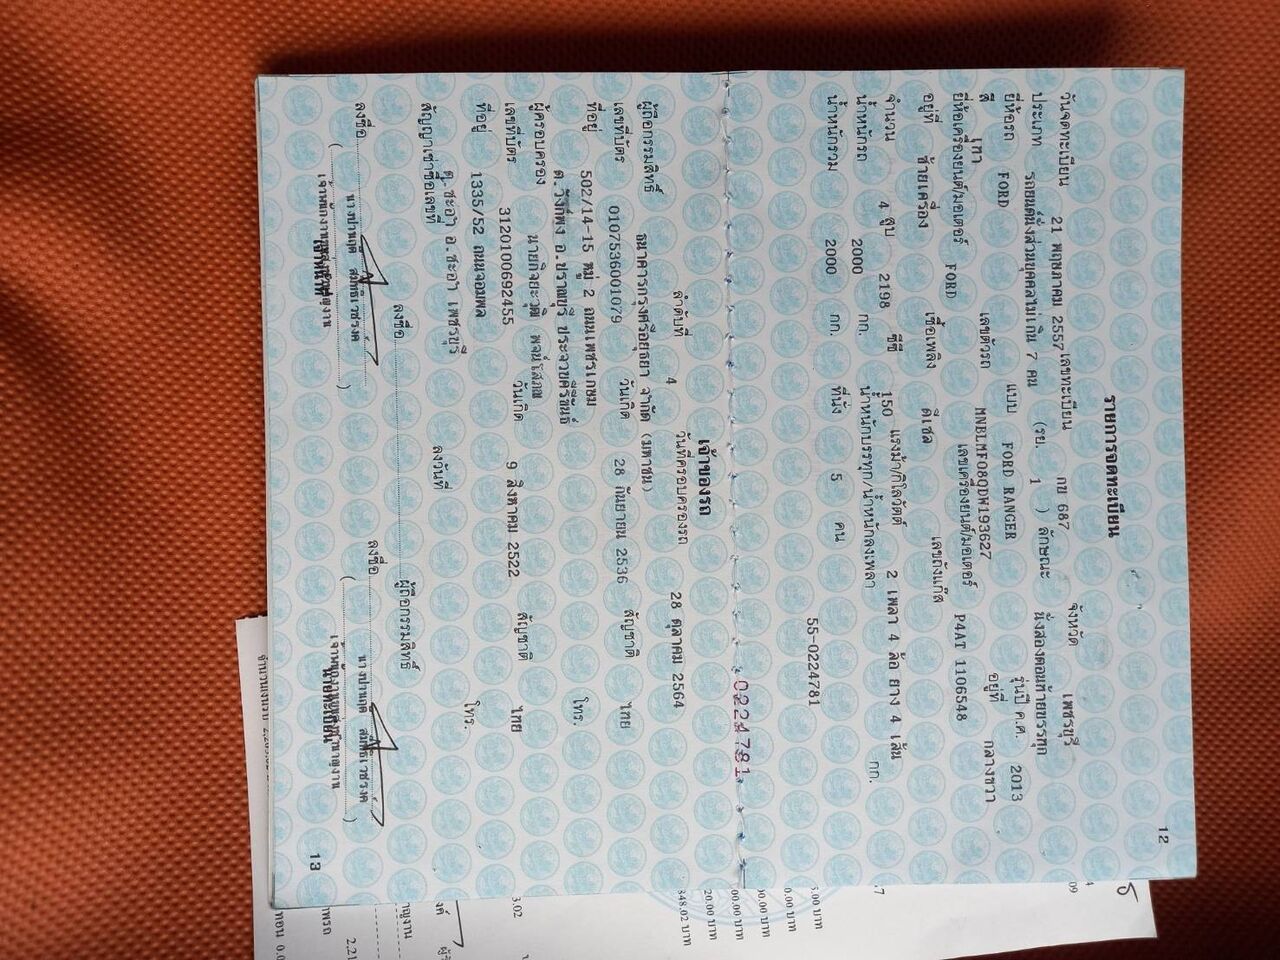 12
รายการจดทะเบียน
วันจดทะเบียน 21 พฤษภาคม 2557 เลขทะเบียน กย 687 จังหวัด เพชรบุรี
ประเภท รถยนต์นั่งส่วนบุคคลไม่เกิน 7 คน (รย. 1 ) ลักษณะ นั่งสองตอนท้ายบรรทุก
ยี่ห้อรถ FORD แบบ FORD RANGER รุ่นปี ค.ศ. 2013
สี เทา เลขตัวรถ MNBLMFO80DW193627 อยู่ที่ กลางขวา
ยี่ห้อเครื่องยนต์/มอเตอร์ FORD เลขเครื่องยนต์/มอเตอร์ P4AT 1106548
อยู่ที่ ซ้ายเครื่อง เชื้อเพลิง ดีเซล เลขถังแก๊ส
จำนวน 4 สูบ 2198 ซีซี 150 แรงม้า/กิโลวัตต์ 2 เพลา 4 ล้อ ยาง 4 เส้น
น้ำหนักรถ 2000 กก. น้ำหนักบรรทุก/น้ำหนักลงเพลา กก.
น้ำหนักรวม 2000 กก. ที่นั่ง 5 คน
55-0224781
0224781
เจ้าของรถ
ลำดับที่ 4 วันที่ครอบครองรถ 28 ตุลาคม 2564
ผู้ถือกรรมสิทธิ์ ธนาคารกรุงศรีอยุธยา จำกัด (มหาชน)
เลขที่บัตร 0107536001079 วันเกิด 28 กันยายน 2536 สัญชาติ ไทย
ที่อยู่ 502/14-15 หมู่ 2 ถนนเพชรเกษม
ต.วังก์พง อ.ปราณบุรี ประจวบคีรีขันธ์ โทร.
ผู้ครอบครอง นายกิจยะวุฒิ พจน์โสภณ
เลขที่บัตร 3120100692455 วันเกิด 9 สิงหาคม 2522 สัญชาติ ไทย
ที่อยู่ 1335/52 ถนนจอมพล
ต.ชะอำ อ.ชะอำ เพชรบุรี โทร.
สัญญาเช่าซื้อเลขที่ ลงวันที่
ลงชื่อ ผู้ถือกรรมสิทธิ์
ลงชื่อ ลงชื่อ
13
848.02 บาท
20.00 บาท
00.00 บาท
3.02
2.21